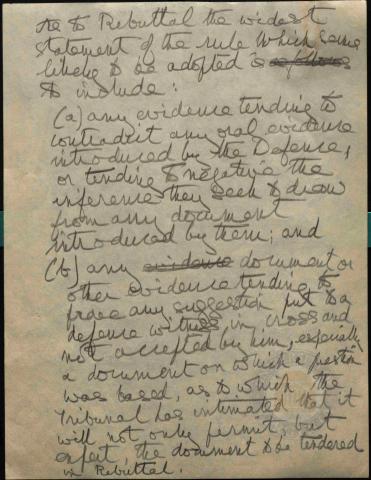 As to Rebuttal the widest
statement of the rule which seems
likely to be adopted is as follows
to include:
(a) any evidence tending to
contradict any oral evidence
introduced by the Defense,
or tending to negative the
inference they seek to draw
from any document
introduced by them; and
(b) any evidence document or
other evidence tending to
prove any suggestion put to a
defense witness in cross and
not accepted by him, especially
a document on which a question
was based, as to which the
Tribunal has intimated that it
will not only permit, but
expect, the document to be tendered
in Rebuttal.